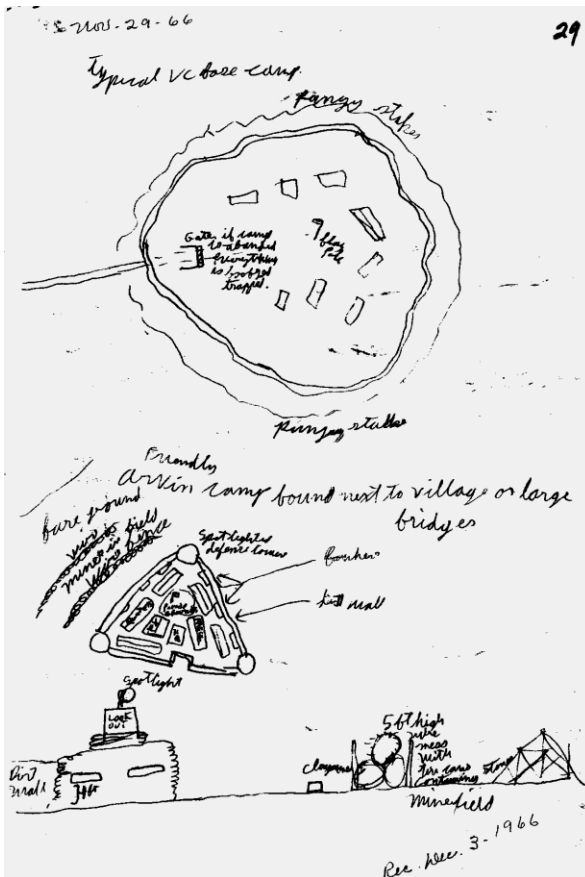 Nov-29-66
29
Typical VC base camp.
Pangy stakes
Gate if camp
is abanded
everything
is boobed
trapped.
flag
Pole
Pungy stakes
Friendly
Arvin camp bound next to village or large
bridges
bare ground
wire
mine in field
wire fence
Spotlight &
defence corner
bunkers
dirt wall
Spotlight
LOOK
OUT
Dirt
wall
Claymore
5 ft high
wire
meas
with
tin cans
containing stones
Minefield
Rec. Dec. 3-1966